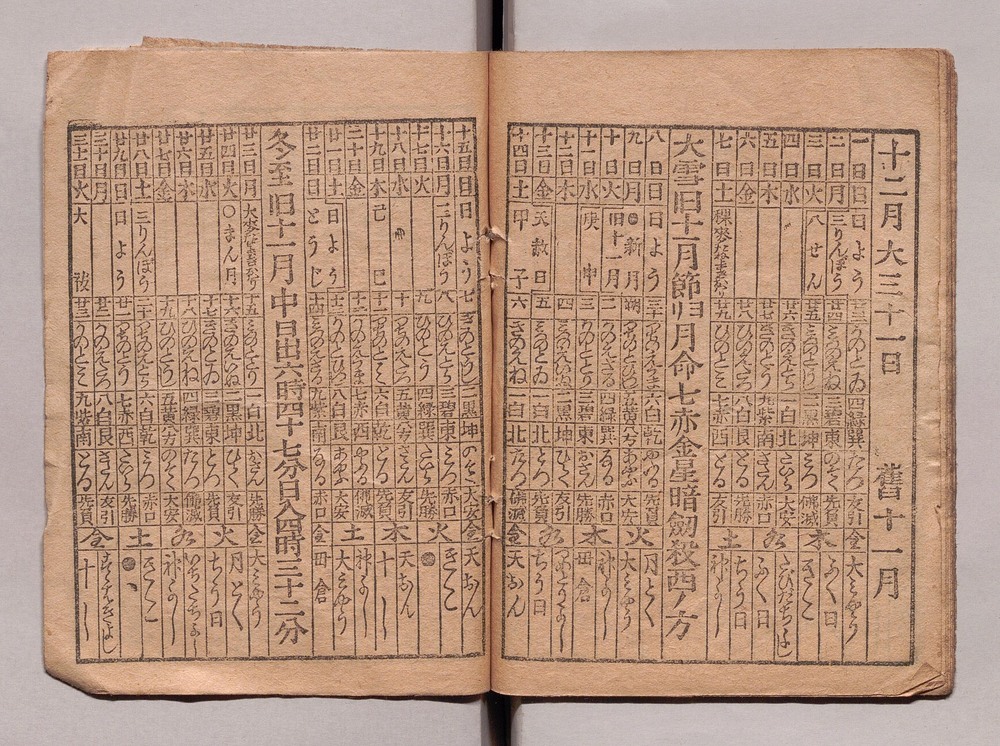 十二月大三十一日 舊十一月
一日 日 日よう 廿三 かのとゐ 四緑巽 友引 金 大みやう
二日 月 三りんぼう 廿四 みづのえね 三碧東 のぞく 先負 ふく日
三日 火 八せん 廿五 二黒坤 みつ 佛滅 木 きこ
四日 水 廿六 きのえとら 一白北 たいら 大安
五日 木 廿七 きのとう 九紫南 さだん 赤口 水 ふく日
六日 金 廿八 ひのえたつ 八白艮 とる 先勝 ちう日
七日 土 廿九 ひのとみ 七赤西 友引 土 神よし
大雪旧十一月節归月命七赤金星暗劔殺西ノ方
八日 日 日よう 三十 つちのえうま 六白乾 やぶる 先負 月とく
九日 月 新月 朔 五黄八方 あやぶ 大安 火 大みやう
十日 火 旧十一月 二 かのえさる 四緑巽 なる 赤口 神よし
十一日 水 庚申 三 かのととり 三碧東 おさん 先勝 木 母倉
十二日 木 四 みづのえいぬ 二黒坤 ひらく 友引
十三日 金 天赦日 五 みづのとゐ 一白北 とづ 先負 水 ちう日
十四日 土 甲子 六 きのえね 一白北 たつ 佛滅 金 天おん
十五日 日 日よう 七 きのとうし 二黒坤 のぞく 大安 金 天おん
十六日 月 三りんぼう 八 ひのえとら 三碧東 みつ 赤口 きこ
十七日 火 九 ひのとう 四緑巽 たいら 先勝 火
十八日 水 十 つちのえたつ 五黄八方 さだん 友引 天おん
十九日 木 己巳 十一 つちのとみ 六白乾 とる 先負 木 十し
二十日 金 十二 かのえうま 七赤西 やぶる 佛滅 神よし
廿一日 土 日よう 十三 かのとひつじ 八白艮 あやぶ 大安 土 大みやう
廿二日 日 とうじ 十四 みづのえさる 九紫南 なる 赤口 母倉
冬至 旧十一月中日出六時四十七分日入四時三十二分
廿三日 月 十五 みづのととり 一白北 おさん 先勝 金 大みやう
廿四日 火 ○まん月 十六 きのえいぬ 二黒坤 ひらく 友引 月とく
廿五日 水 十七 きのとゐ 三碧東 とづ 先負 火 ちう日
廿六日 木 十八 ひのえね 四緑巽 たつ 佛滅
廿七日 金 十九 ひのとうし 五黄八方 のぞく 大安 水 神よし
廿八日 土 三りんぼう 二十 つちのえとら 六白乾 みつ 赤口 きこ
廿九日 日 日よう 廿一 つちのとう 七赤西 たいら 先勝 土
三十日 月 廿二 かのえたつ 八白艮 さだん 友引
三十一日 火 大祓 廿三 かのとみ 九紫南 とる 先負 金 十し